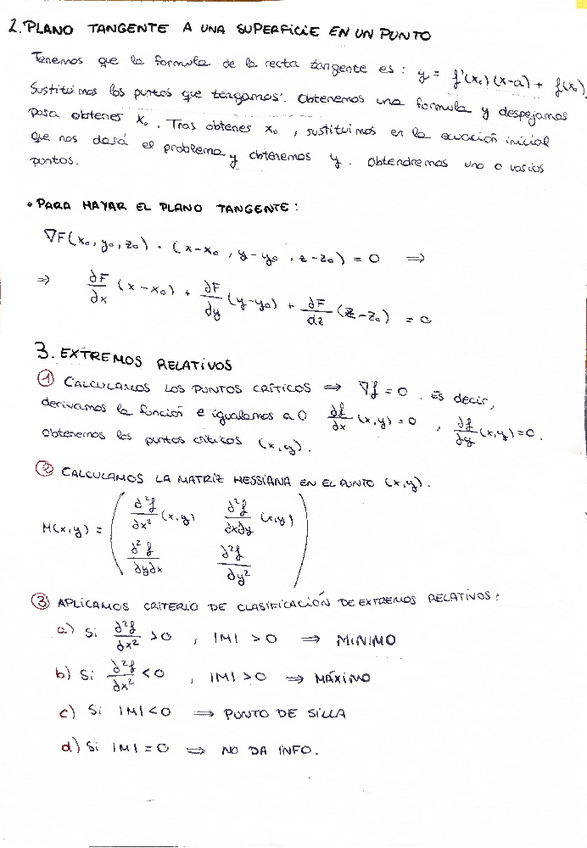 2. PLANO TANGENTE A UNA SUPERFICIE EN UN PUNTO
Tenemos que la formula de la recta tangente es: y = f'(x₀)(x-a) + f(x₀)
Sustituimos los puntos que tengamos. Obtenemos una formula y despejamos
para obtener x₀. Tras obtener x₀, sustituimos en la ecuación inicial
que nos dará el problema y obtenemos y. Obtendremos uno o varios
puntos.
• PARA HAYAR EL PLANO TANGENTE:
∇F(x₀, y₀, z₀) · (x-x₀, y-y₀, z-z₀) = 0 ⇒
⇒ ∂F/∂x (x-x₀) + ∂F/∂y (y-y₀) + ∂F/∂z (z-z₀) = 0
3. EXTREMOS RELATIVOS
① CALCULAMOS LOS PUNTOS CRÍTICOS ⇒ ∇f = 0. Es decir,
derivamos la función e igualamos a 0 ∂f/∂x (x,y) = 0, ∂f/∂y (x,y) = 0.
Obtenemos los puntos críticos (x,y).
② CALCULAMOS LA MATRIZ HESSIANA EN EL PUNTO (x,y).
H(x,y) = ( ∂²f/∂x² (x,y) ∂²f/∂x∂y (x,y)
∂²f/∂y∂x ∂²f/∂y² )
③ APLICAMOS CRITERIO DE CLASIFICACIÓN DE EXTREMOS RELATIVOS:
a) Si ∂²f/∂x² > 0, |M| > 0 ⇒ MINIMO
b) Si ∂²f/∂x² < 0, |M| > 0 ⇒ MÁXIMO
c) Si |M| < 0 ⇒ PUNTO DE SILLA
d) Si |M| = 0 ⇒ NO DA INFO.